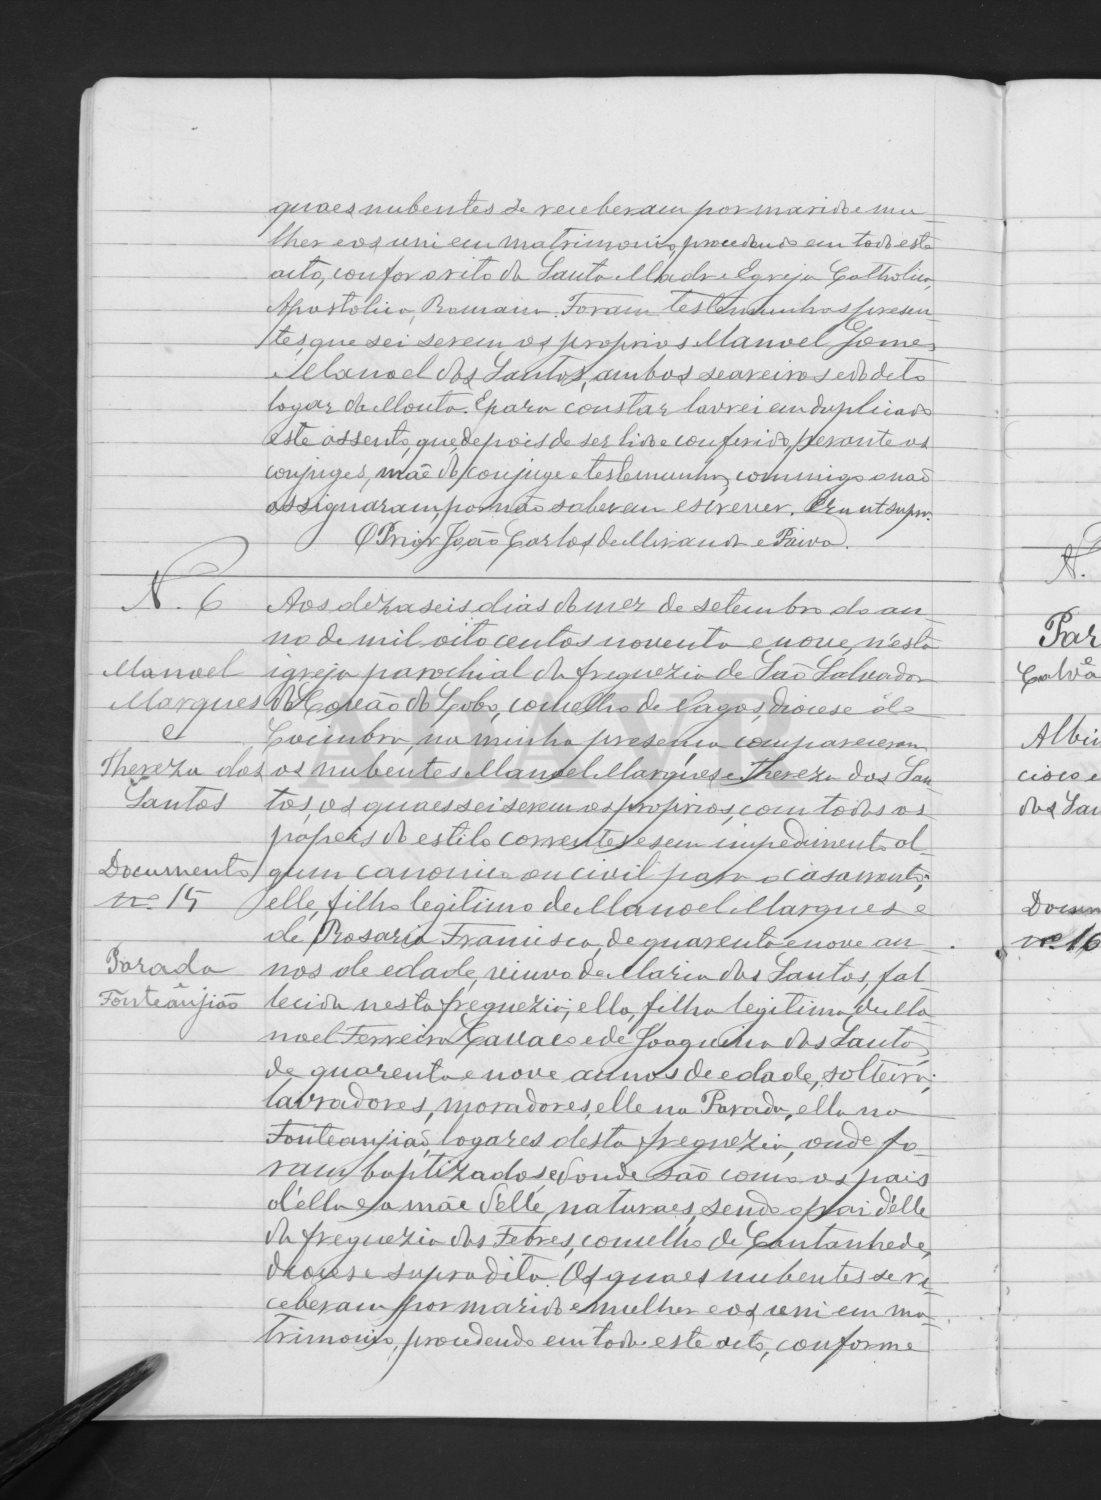 quaes nubentes se receberam por marido e mu-
lher e os uni em matrimonio, procedendo em todo este
acto, confor o rito da Santa Madre Egreja Catholica,
Apostolica, Romana. Foram testemunhas presen-
tes, que sei serem os proprios Manoel Gomes
Manoel dos Santos, ambos seareiros e do dito
logar da Mouta. E para constar lavrei em duplicado
este assento, que, depois de ser lido e conferido, perante os
conjuges, mãe do conjuge e testemunhas, commigo o não
assignaram, por não saberem escrever. Era ut supra.
O Prior João Carlos de Miranda e Paiva.
N. 6
Manoel
Marques
e
Thereza dos
Santos
Documento
nº 15
Parada
Fonteanjião
Aos dezaseis dias do mez de setembro do an-
no de mil oitocentos noventa e nove, n'esta
igreja parochial da freguezia de São Salvador
do Covão do Lobo, concelho de Vagos, diocese de
Coimbra, na minha presença compareceram
os nubentes Manoel Marques e Thereza dos San-
tos, os quaes sei serem os proprios, com todos os
papeis do estilo correntes e sem impedimento al-
gum canonico ou civil para o casamento;
elle, filho legitimo de Manoel Marques e
de Rosaria Francisca, de quarenta e nove an-
nos de edade, viuvo de Maria dos Santos, fal-
lecida nesta freguezia; ella, filha legitima de Ma-
noel Ferreira e de Joaquina dos Santos,
de quarenta e nove annos de edade, solteira;
lavradores, moradores, elle na Parada, ella na
Fonteanjião, logares desta freguezia, onde fo-
ram baptizados e donde são como os pais
d'ella e a mãe d'elle, naturaes, sendo o pai d'elle
da freguezia das Febres, concelho de Cantanhede,
diocese supradita. Os quaes nubentes se re-
ceberam por marido e mulher e os uni em ma-
trimonio, procedendo em todo este acto, conforme
N.
Par
Calvã
Albi
cisco e
dos San
Docum
nº 16